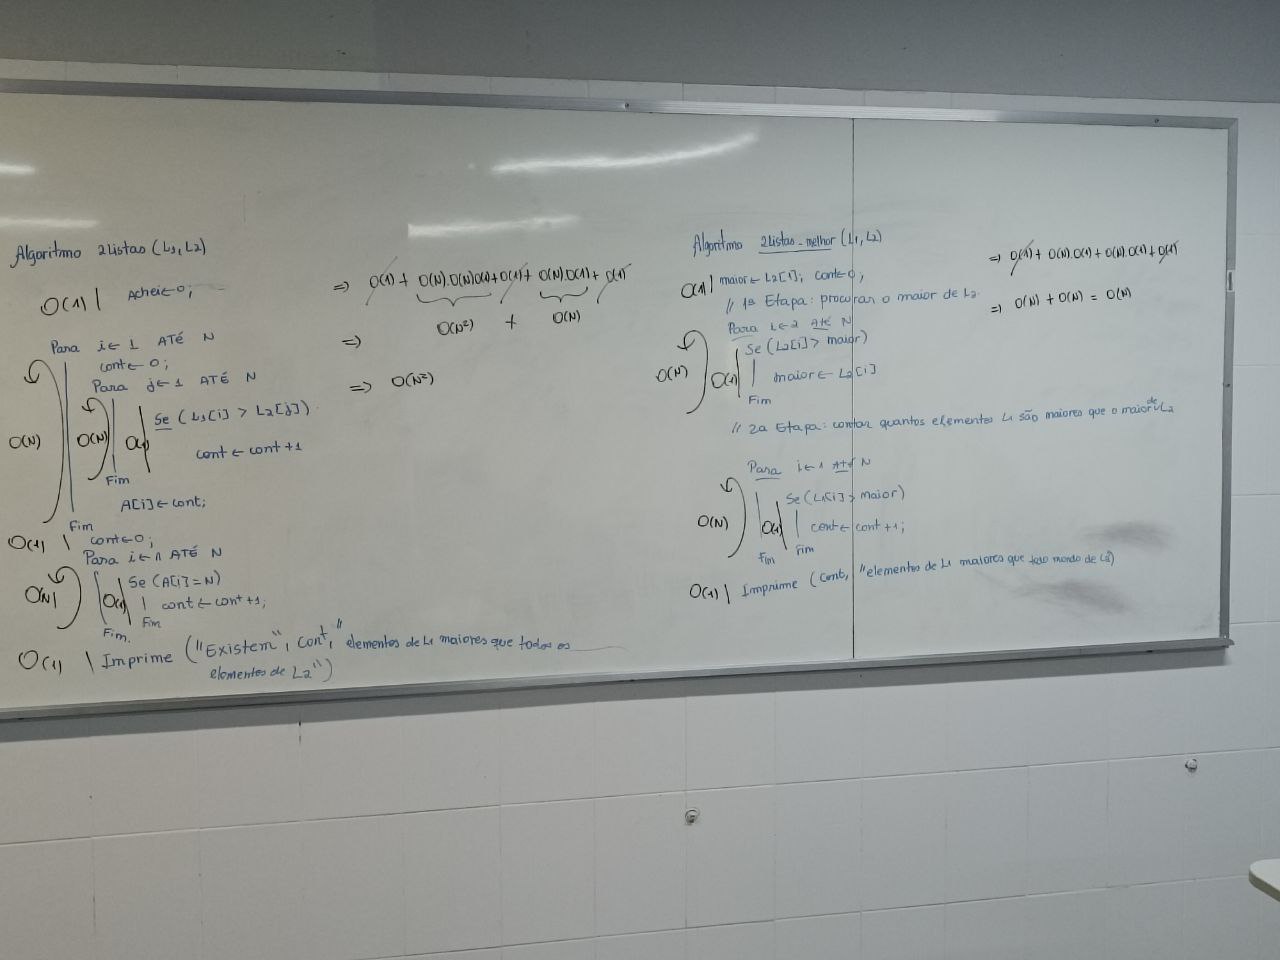 Algoritmo 2Listas (L1, L2)
O(1) | Achei ← 0;
Para i ← 1 ATÉ N
cont ← 0;
Para j ← 1 ATÉ N
Se (L1[i] > L2[j])
O(N) O(N) O(1)
cont ← cont + 1
Fim
A[i] ← cont;
Fim
O(1) | cont ← 0;
Para i ← 1 ATÉ N
Se (A[i] = N)
O(N) O(1) | cont ← cont + 1;
Fim
Fim.
O(1) | Imprime ("Existem", cont, "elementos de L1 maiores que todos os
elementos de L2")
⇒ O(1) + O(N).O(N).O(1) + O(1) + O(N).O(1) + O(1)
⇒ O(N²) + O(N)
⇒ O(N²)
Algoritmo 2Listas_melhor (L1, L2)
O(1) | maior ← L2[1]; cont ← 0;
// 1ª Etapa: procurar o maior de L2
Para i ← 2 Até N
Se (L2[i] > maior)
O(N) O(1) | maior ← L2[i]
Fim
// 2a Etapa: contar quantos elementos L1 são maiores que o maior de L2
Para i ← 1 Até N
Se (L1[i] > maior)
O(N) O(1) | cont ← cont + 1;
Fim Fim
O(1) | Imprime (cont, "elementos de L1 maiores que todo mundo de L2")
⇒ O(1) + O(N).O(1) + O(N).O(1) + O(1)
⇒ O(N) + O(N) = O(N)